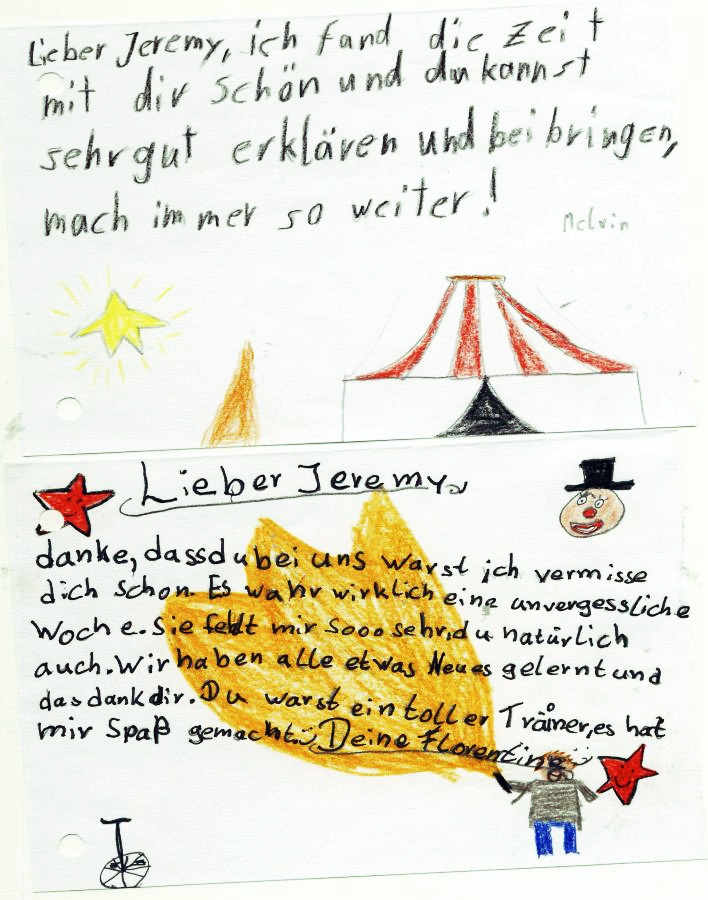 Lieber Jeremy, ich fand die Zeit
mit dir schön und du kannst
sehr gut erklären und beibringen,
mach immer so weiter!
Melvin
Lieber Jeremy,
danke, dass du bei uns warst ich vermisse
dich schon. Es wahr wirklich eine unvergessliche
Woche. Sie fehlt mir sooo sehr, du natürlich
auch. Wir haben alle etwas Neues gelernt und
das dank dir. Du warst ein toller Träiner, es hat
mir Spaß gemacht. Deine Florentine